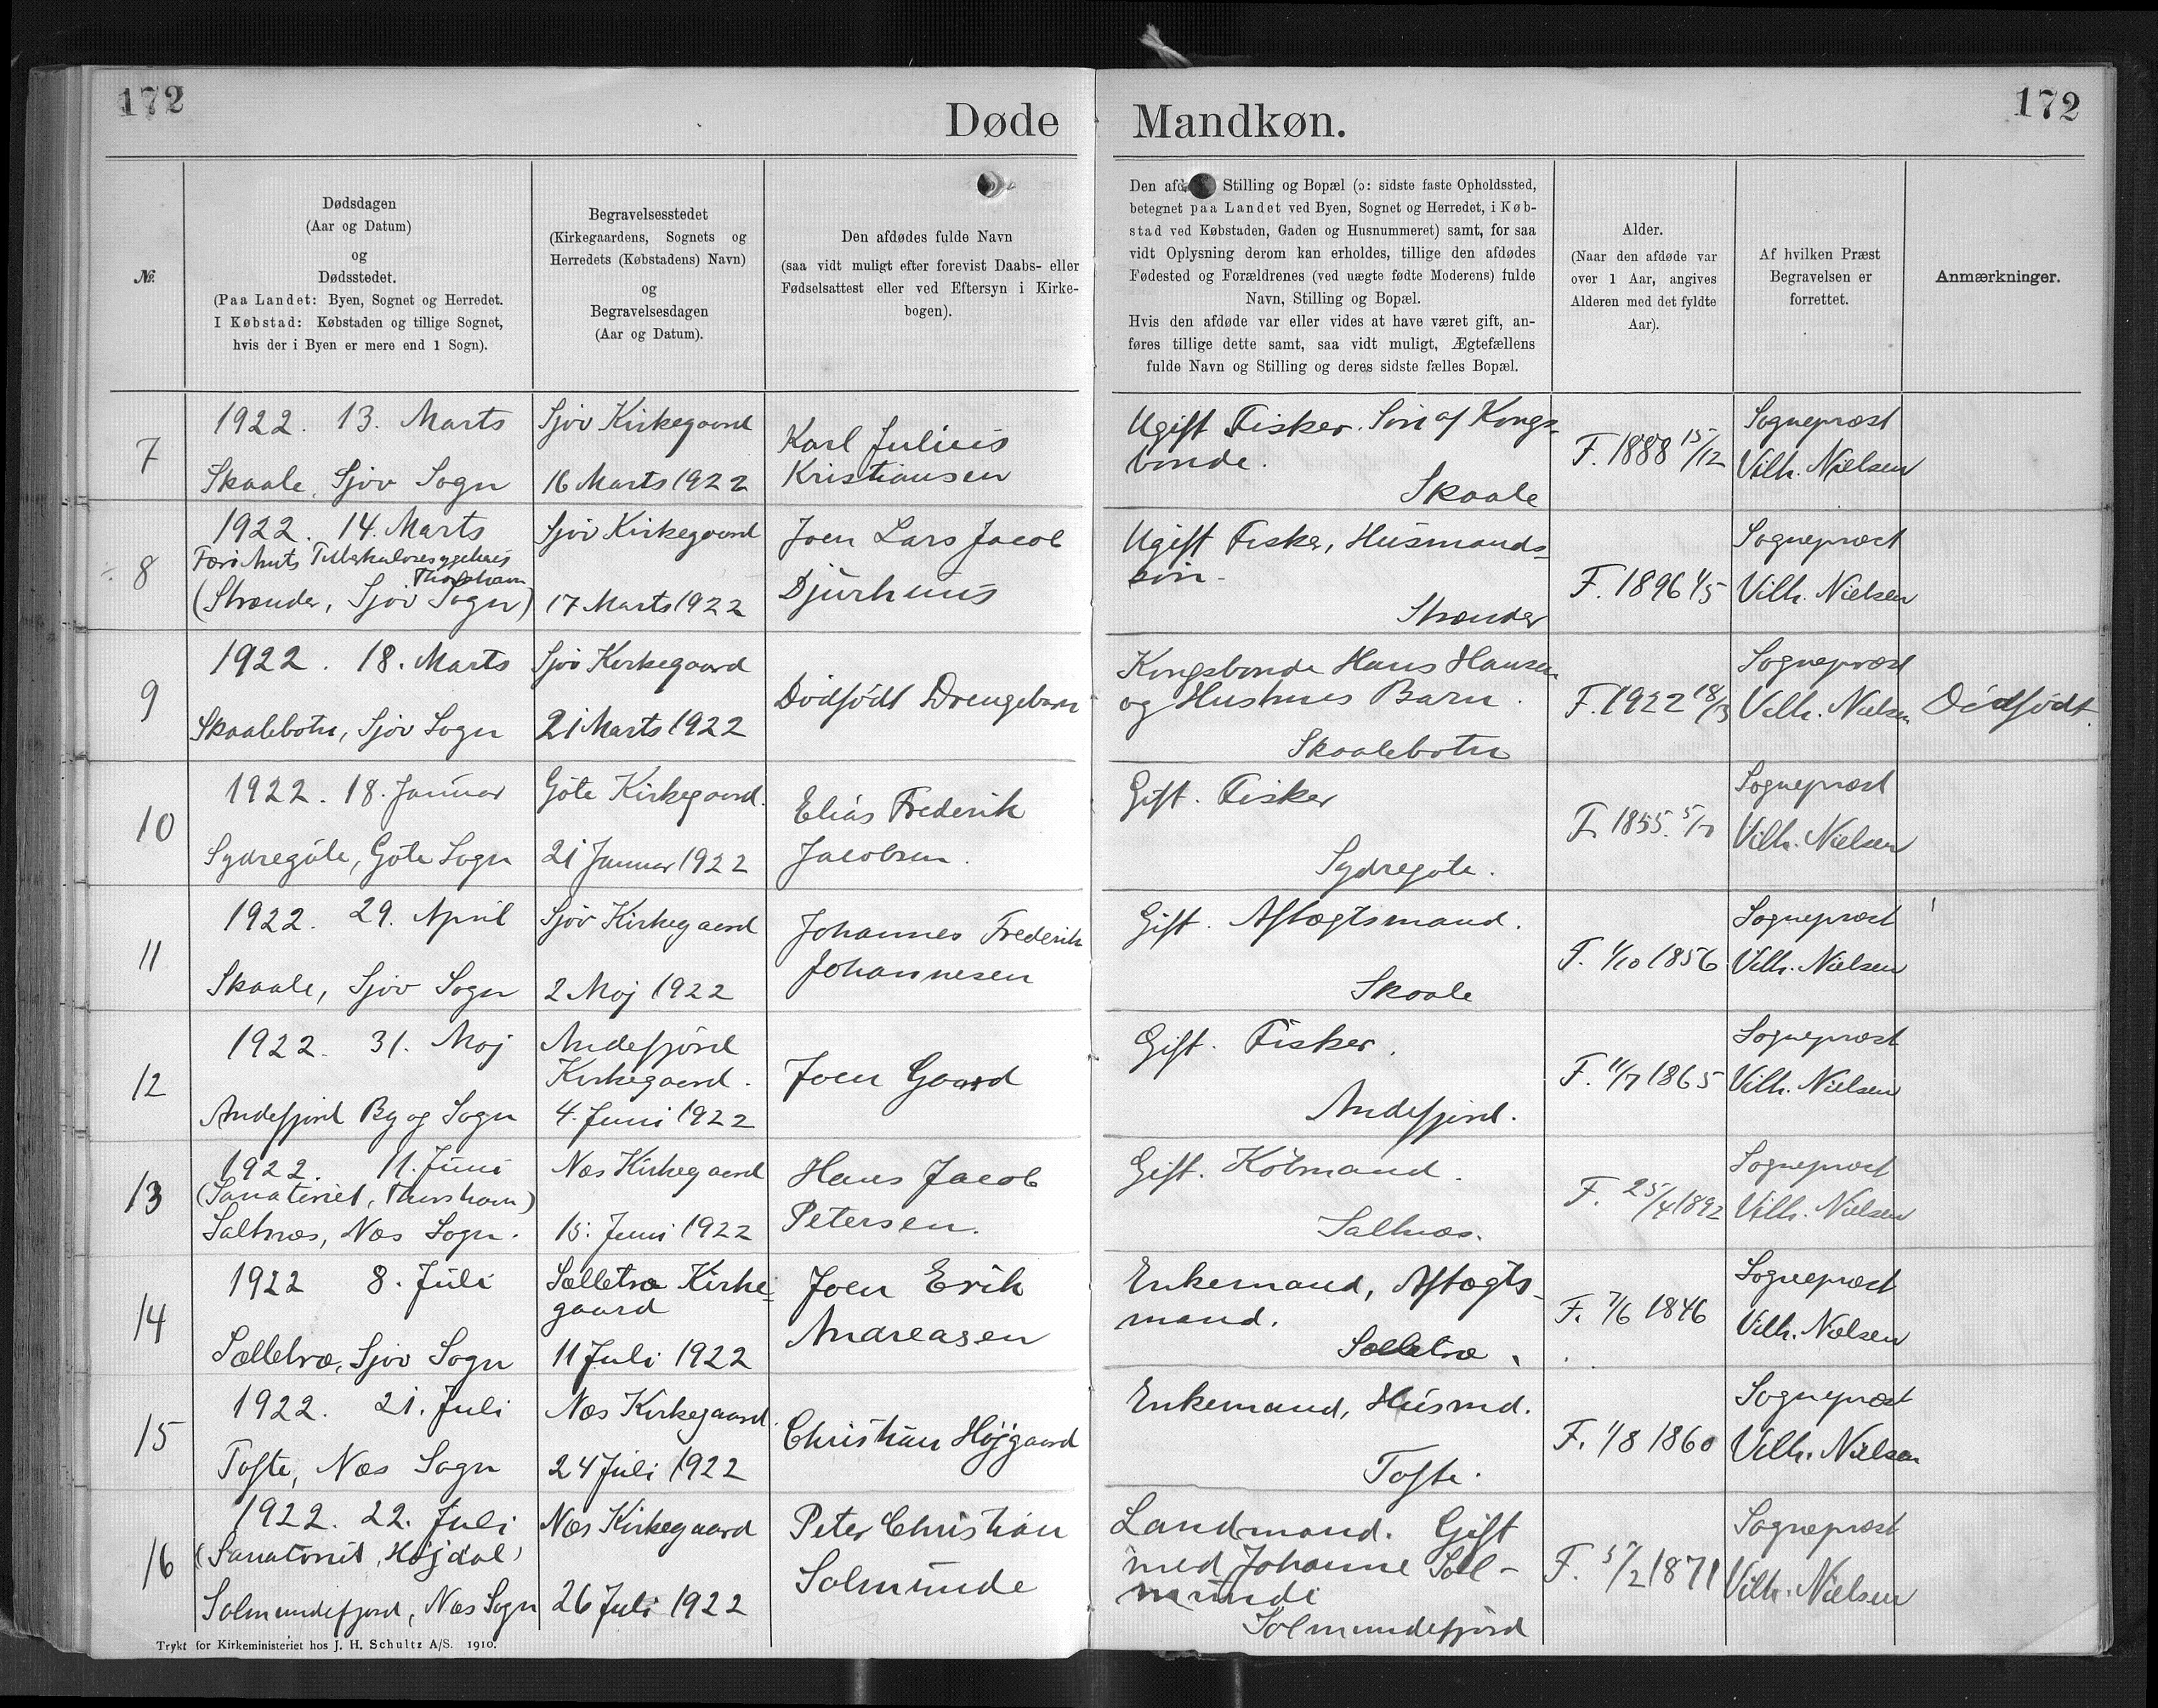 172
Døde
Mandkøn.
172
№.
Dødsdagen
(Aar og Datum)
og
Dødsstedet.
(Paa Landet: Byen, Sognet og Herredet.
I Købstad: Købstaden og tillige Sognet,
hvis der i Byen er mere end 1 Sogn).
Begravelsesstedet
(Kirkegaardens, Sognets og
Herredets (Købstadens) Navn)
og
Begravelsesdagen
(Aar og Datum).
Den afdødes fulde Navn
(saa vidt muligt efter forevist Daabs- eller
Fødselsattest eller ved Eftersyn i Kirke-
bogen).
Den Stilling og Bopæl (ɔ: sidste faste Opholdssted,
betegnet paa Landet ved Byen, Sognet og Herredet, i Køb-
stad ved Købstaden, Gaden og Husnummeret) samt, for saa
vidt Oplysning derom kan erholdes, tillige den afdødes
Fødested og Forældrenes (ved uægte fødte Moderens) fulde
Navn, Stilling og Bopæl.
Hvis den afdøde var eller vides at have været gift, an-
føres tillige dette samt, saa vidt muligt, Ægtefællens
fulde Navn og Stilling og deres sidste fælles Bopæl.
Alder.
(Naar den afdøde var
over 1 Aar, angives
Alderen med det fyldte
Aar).
Af hvilken Præst
Begravelsen er
forrettet.
Anmærkninger.
7
1922. 13. Marts
Skaale, Sjov Sogn
Sjov Kirkegaard
16 Marts 1922
Karl Julius
Kristiansen
Ugift Fisker. Søn af Kongs-
bonde.
Skaale
F. 1888 15/12
Sognepræst
Vilh. Nielsen
8
1922. 14. Marts
Færø Amts Tuberkulosesygehus
Thorshavn
(Strænder, Sjov Sogn)
Sjov Kirkegaard
17 Marts 1922
Joen Lars Jacob
Djurhuus
Ugift Fisker, Husmands-
søn
Strænder
F. 1896 1/5
Sognepræst
Vilh. Nielsen
9
1922. 18. Marts
Skaalebotn, Sjov Sogn
Sjov Kirkegaard
21 Marts 1922
Dødfødt Drengebarn
Kongsbonde Hans Hansen
og Hustrues Barn.
Skaalebotn
F. 1922 18/3
Sognepræst
Vilh. Nielsen
Dødfødt.
10
1922. 18. Januar
Sydregøte, Gøte Sogn
Gøte Kirkegaard.
21 Januar 1922
Elias Frederik
Jacobsen.
Gift. Fisker
Sydregøte.
F. 1855.
Sognepræst
Vilh. Nielsen
11
1922. 29. April
Skaale, Sjov Sogn
Sjov Kirkegaard
2 Maj 1922
Johannes Frederik
Johannesen
Gift. Aftægtsmand.
Skaale
F. 1/10 1856
Sognepræst
Vilh. Nielsen
12
1922. 31. Maj
Andefjord By og Sogn
Andefjord
Kirkegaard.
4. Juni 1922
Joen Gaard
Gift. Fisker.
Andefjord.
F. 11/7 1865
Sognepræst
Vilh. Nielsen
13
1922. 11. Juni
(Sanatoriet, Thorshavn)
Saltnæs, Næs Sogn.
Næs Kirkegaard
15. Juni 1922
Hans Jacob
Petersen.
Gift. Købmand.
Saltnæs.
F. 25/4 1892
Sognepræst
Vilh. Nielsen
14
1922 8. Juli
Selletræ, Sjov Sogn
Selletræ Kirke-
gaard
11 Juli 1922
Joen Erik
Andreasen
Enkemand, Aftægts-
mand.
Selletræ.
F. 7/6 1846
Sognepræst
Vilh. Nielsen
15
1922. 21. Juli
Tofte, Næs Sogn
Næs Kirkegaard.
24 Juli 1922
Christian Højgaard
Enkemand, Husmd.
Tofte.
F. 1/8 1860
Sognepræst
Vilh. Nielsen
16
1922. 22. Juli
(Sanatoriet, Højdal)
Solmundefjord, Næs Sogn
Næs Kirkegaard
26 Juli 1922
Peter Christian
Solmunde
Landmand. Gift
med Johanne Sol-
munde
Solmundefjord
F. 5/2 1871
Sognepræst
Vilh. Nielsen
Trykt for Kirkeministeriet hos J. H. Schultz A/S. 1910.